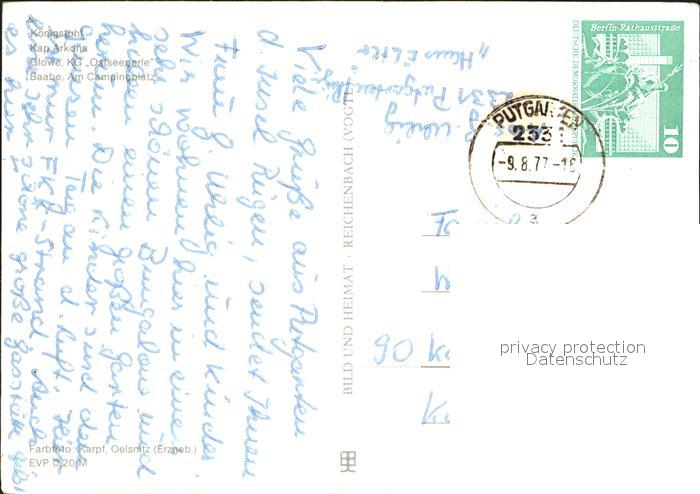 Königstuhl
Kap Arkona
Glowe, KG „Ostseeperle"
Baabe, Am Campingplatz
Viele Grüße aus Putgarten
d. Insel Rügen, sendet Ihnen
Frau G. Uhlig und Kinder.
Wir wohnen hier in einem
sehr schönen Bungalow und
haben einen großen Garten
herum. Die Kinder sind den
ganzen Tag an d. Luft,
immer FKK-Strand. Auch
eine sehr schöne große Gaststätte gibt
es hier
Farbfoto: Karpf, Oelsnitz (Erzgeb.)
EVP 0,20 M
BILD UND HEIMAT · REICHENBACH (VOGTL)
G. Uhlig
2331 Putgarten/Rüg
„Haus Elter"
PUTGARTEN
233
-9.8.77-18
a
Berlin-Rathausstraße
DEUTSCHE DEMOKRATISCHE
10
90 K
privacy protection
Datenschutz